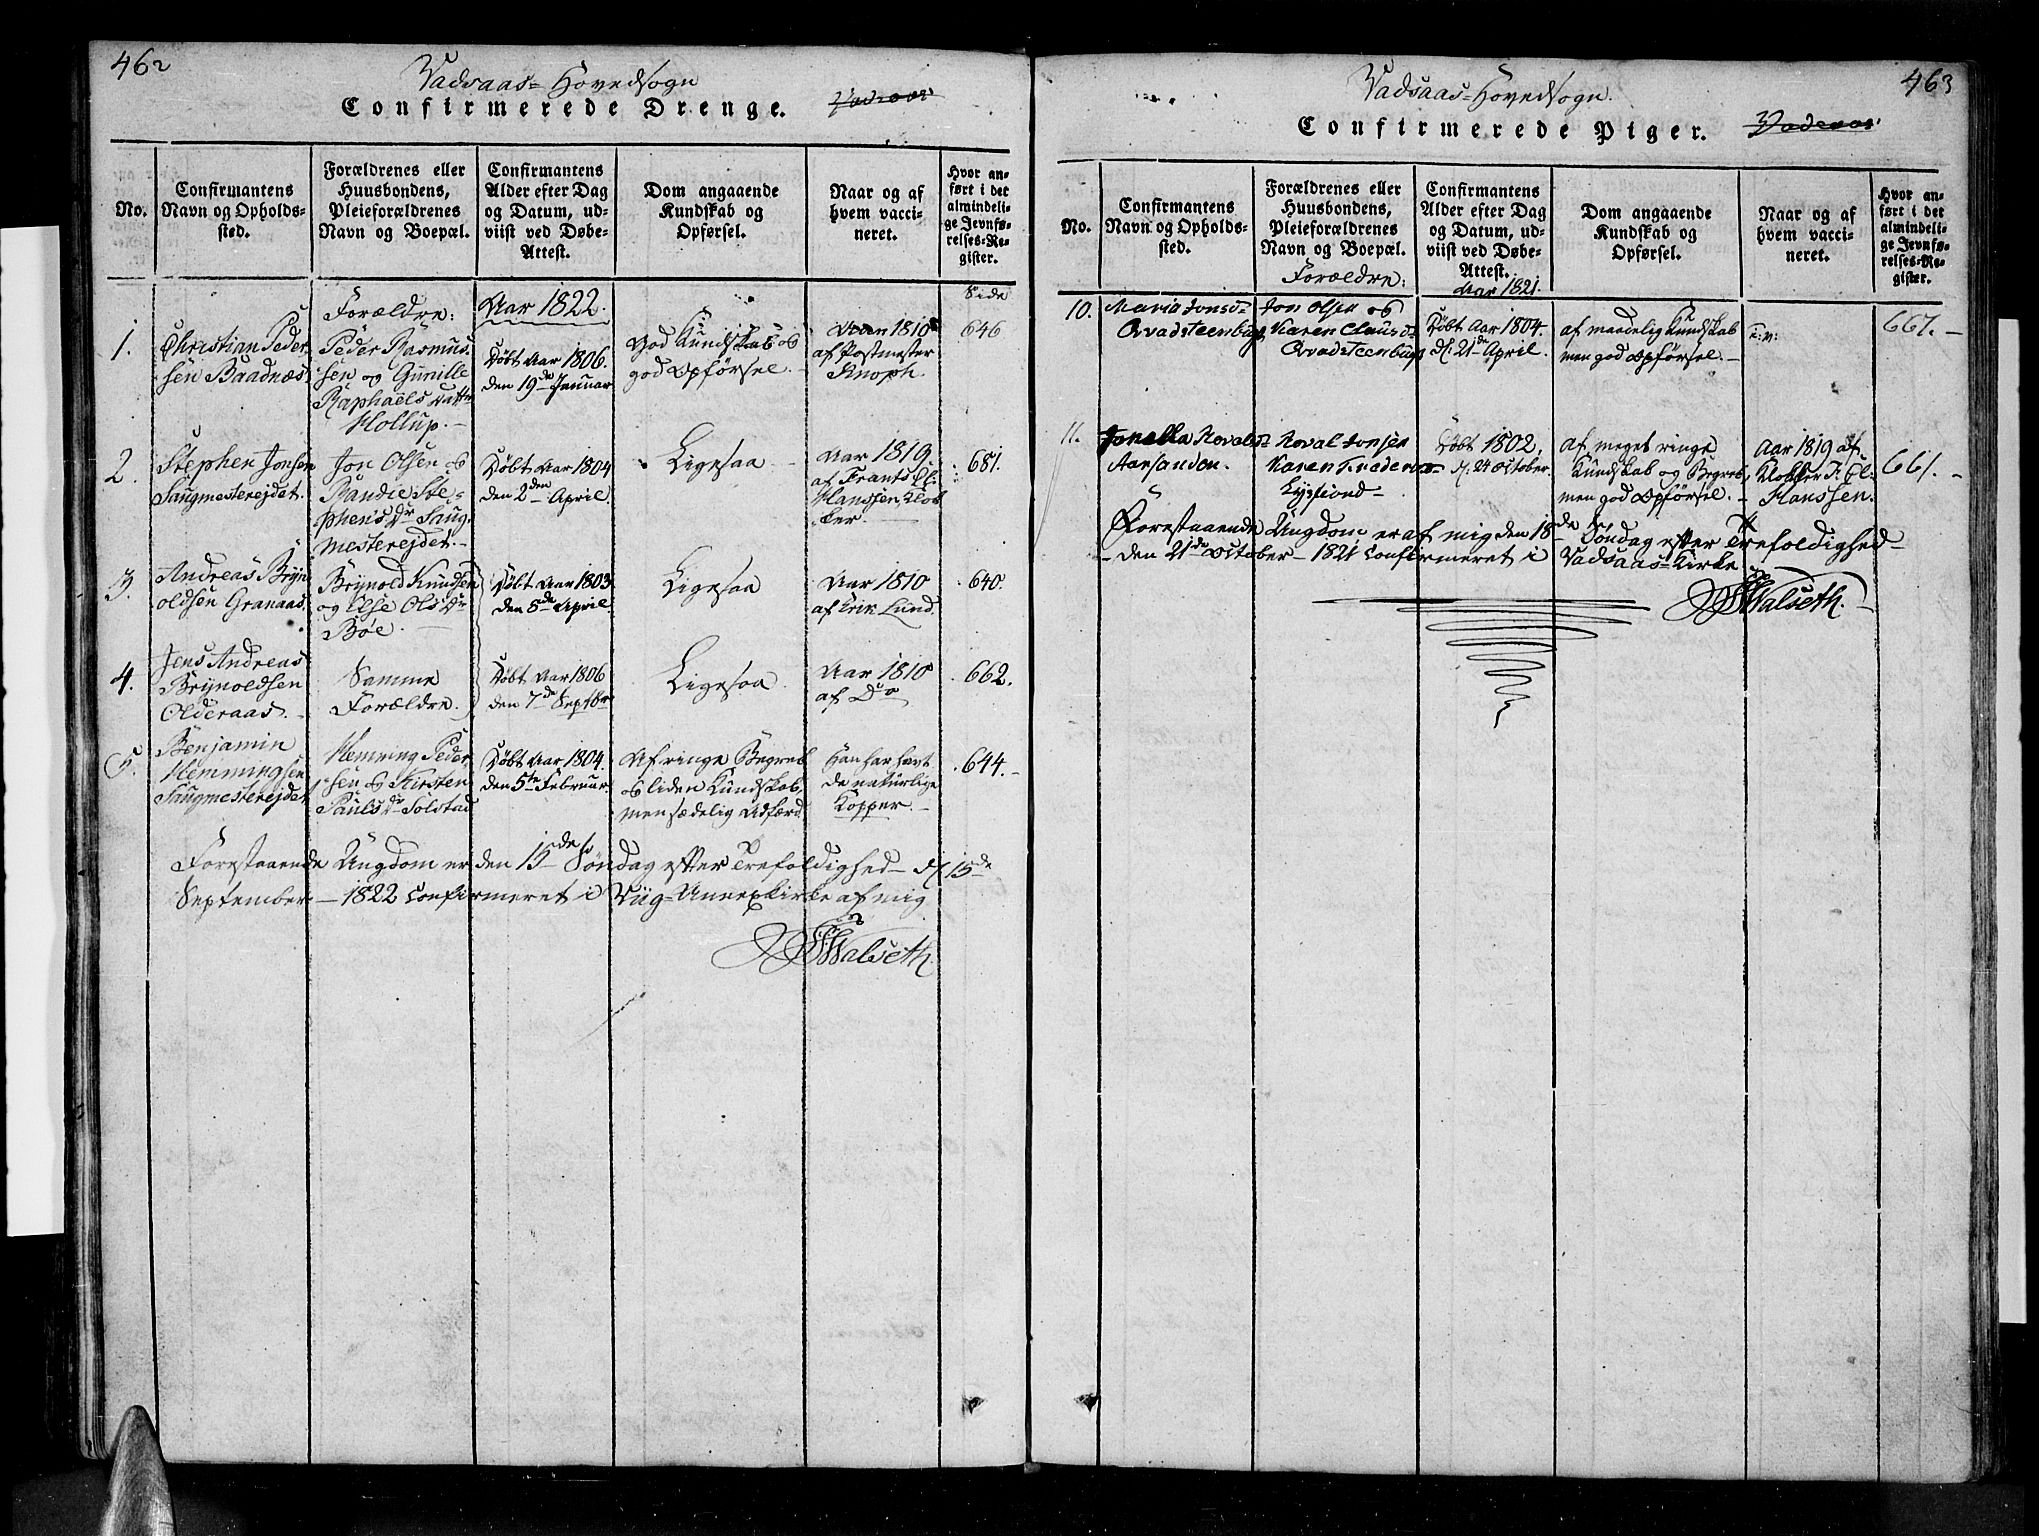 462
Vadsaas- Hovedsogn
Confirmerede Drenge.
No.
Confirmantens
Navn og Opholds-
sted.
Forældrenes eller
Huusbondens,
Pleieforældrenes
Navn og Boepæl.
Confirmantens
Alder efter Dag
og Datum, ud-
viist ved Døbe-
Attest.
Dom angaaende
Kundskab og
Opførsel.
Naar og af
hvem vacci-
neret.
Hvor an-
ført i det
almindeli-
ge Jevnfø-
relses-Re-
gister.
Forældre:
Aar 1822.
Side
1.
Christian Peder-
sen Baadnæs
Peder Rasmus-
sen og Gunille
Raphaels Datter
Hollup.
Døbt Aar 1806.
den 19de Januar
God Kundskab og
god Opførsel.
Aar 1810
af Postmester
Knoph.
646
2.
Stephen Jonsen
Saugmesterejdet.
Jon Olsen og
Randie Ste-
phens Dr Saug-
mesterejdet.
Døbt Aar 1804
den 2den April
Ligesaa
Aar 1819
af Frants El:
Hanssen, Klok-
ker.
681.
3.
Andreas Bryn-
oldsen Granaas.
Brynold Knudsen
og Else Ols Dr
Bøe.
Døbt Aar 1803.
den 5de April
Ligesaa
Aar 1810
af Erik Lund.
640.
4.
Jens Andreas
Brynoldsen
Olderaas.
Samme
Forældre.
Døbt Aar 1806
den 7de Septbr
Ligesaa
Aar 1810
af Do
662.
5.
Benjamin
Hemmingsen
Saugmesterejdet
Hemming Peder-
sen og Kirsten
Pauls Dr Solstad
Døbt Aar 1804.
den 5te Februar
Af ringe Begreb
og liden Kundskab,
men sædelig Adfærd.
Han har havt
de naturlige
Kopper.
644.
Forestaaende Ungdom er den 15de Søndag efter Trefoldighed d. 15de
September 1822 confirmeret i Viig-Annexkirke af mig
Walseth.
463
Vadsaas- Hovedsogn.
Confirmerede Piger.
No.
Confirmantens
Navn og Opholds-
sted.
Forældrenes eller
Huusbondens,
Pleieforældrenes
Navn og Boepæl.
Forældre:
Confirmantens
Alder efter Dag
og Datum, ud-
viist ved Døbe-
Attest.
Aar 1821.
Dom angaaende
Kundskab og
Opførsel.
Naar og af
hvem vacci-
neret.
Hvor an-
ført i det
almindeli-
ge Jevnfø-
relses-Re-
gister.
10.
Maria Jonsd-
Qvadsteenbugt
Jon Olsen og
Karen Clausd-
Qvadsteenbugt
Døbt Aar 1804.
d. 21de April.
af maadelig Kundskab
men god Opførsel.
667.
11.
Jonella Rovalsd-
Aarsanden.
Roval Jonsen
Karen
Døbt 1802,
d. 24 October.
af meget ringe
Kundskab og Begreb,
men god Opførsel.
Aar 1819 af
Klokker F: El:
Hanssen.
661.
Forestaaende Ungdom er af mig den 18de Søndag efter Trefoldighed
den 21de October 1821 confirmeret i Vadsaas-Kirke
Walseth.